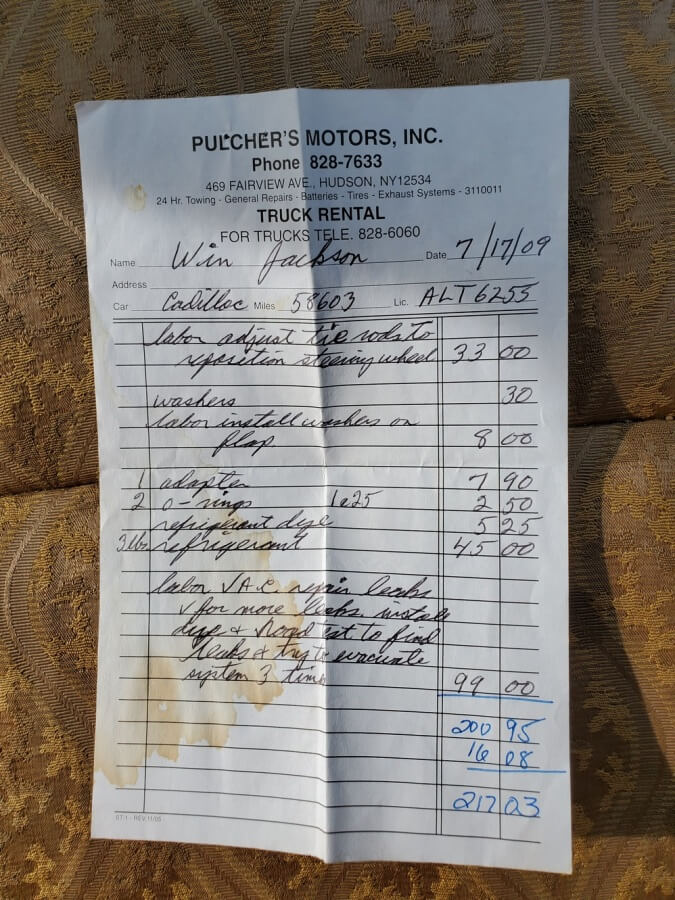 PULCHER'S MOTORS, INC.
Phone 828-7633
469 FAIRVIEW AVE., HUDSON, NY12534
24 Hr. Towing - General Repairs - Batteries - Tires - Exhaust Systems - 3110011
TRUCK RENTAL
FOR TRUCKS TELE. 828-6060
Name Win Jackson Date 7/17/09
Address
Car Cadillac Miles 58603 Lic. ALT6255
labor adjust tie rods to
reposition steering wheel 33 00
washers 30
labor install washers on
flap 8 00
1 adapter 7 90
2 o-rings 1e25 2 50
refrigerant dye 5 25
3 lbs refrigerant 45 00
labor √ A.C. repair leaks
√ for more leaks install
dye + road test to find
leaks & try to evacuate
system 3 times 99 00
200 95
16 08
217 03
ST-1 - REV. 11/05